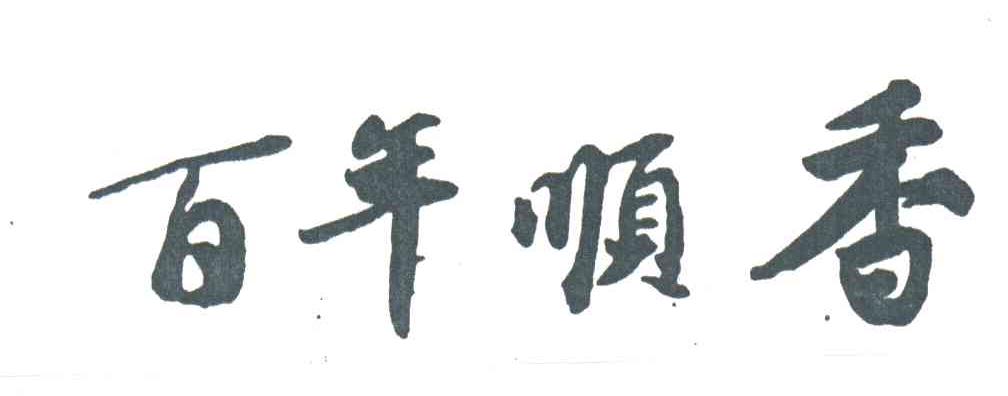 百年順香